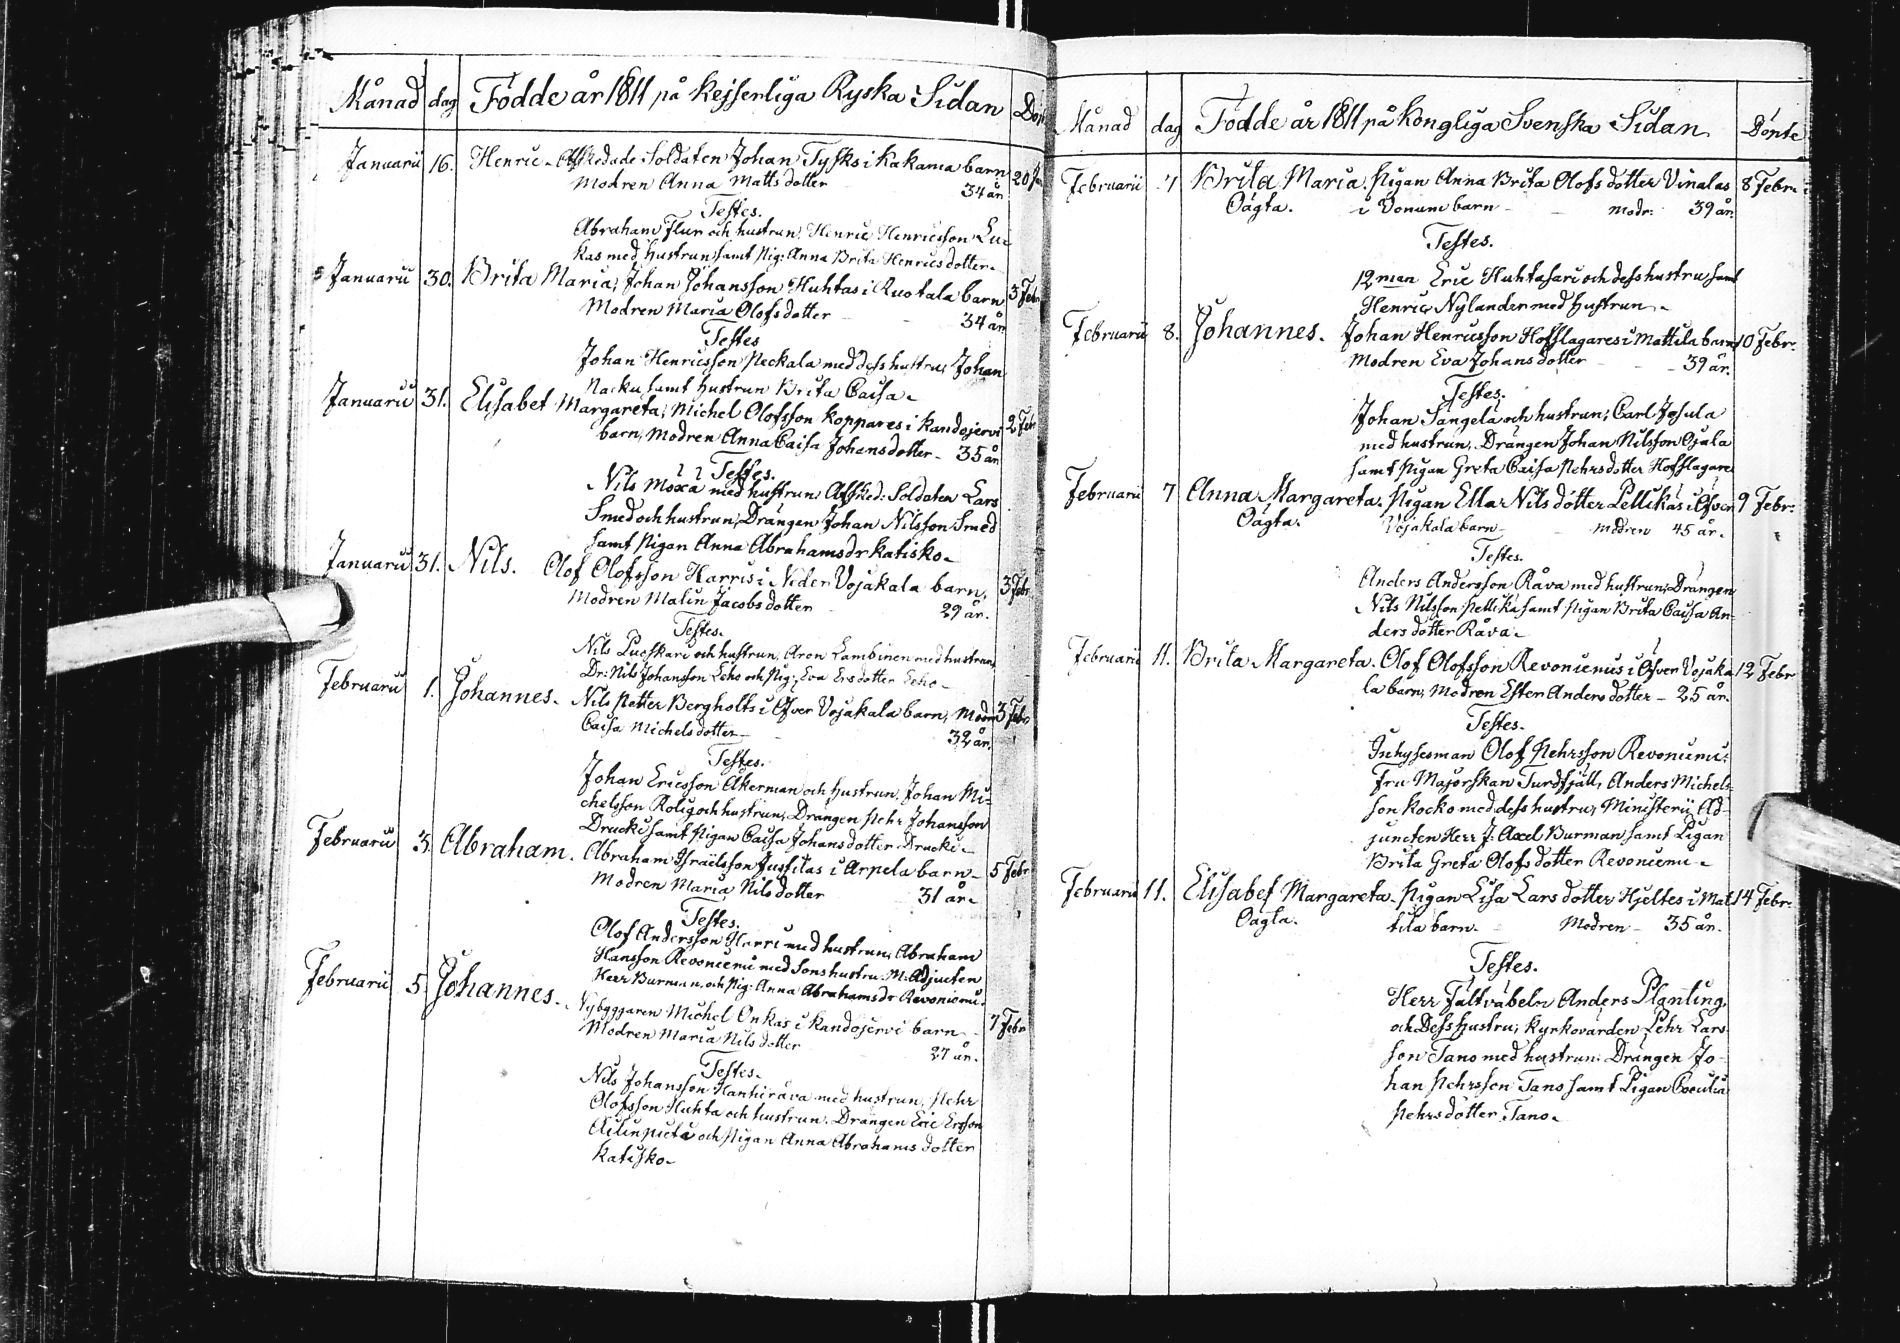 Månad dag Födde år 1811 på Kejserliga Ryska Sidan
Januarii 16. Henric. Afskedade Soldaten Johan Tysks i Kakama barn 20
Modren Anna Matts dotter 34 år.
Testes.
Abraham Flur och hustrun, Henric Henricsson Lu-
kas med Hustrun samt Pig: Anna Brita Henrics dotter.
Januarii 30. Brita Maria, Johan Johansson Huhtas i Ruotala barn 3 Febr
Modren Maria Olofs dotter 34 år
Testes
Johan Henricsson Peckala med dess hustru, Johan
Nacku samt Hustrun Brita Caisa.
Januarii 31. Elisabet Margareta, Michel Olofsson Koppares i Kandojervi 2 Febr
barn, Modren Anna Caisa Johans dotter. 35 år
Testes.
Nils Moxa med hustrun, Afsked: Soldaten Lars
Smed och hustrun, Drängen Johan Nilsson Smed
samt Pigan Anna Abrahamsdr Katisko.
Januarii 31. Nils. Olof Olofsson Harris i Neder Vojakala barn, 3 Febr.
Modren Malin Jacobs dotter 29 år.
Testes.
Nils Luoskari och hustrun, Aron Lambinen med hustrun,
Dr: Nils Johansson Leho och Pig: Eva Ersdotter Leho.
Februarii 1. Johannes. Nils Petter Bergholts i Öfver Vojakala barn, Modr 3 Febr
Caisa Michels dotter 32 år.
Testes.
Johan Ericsson Åkerman och Hustrun, Johan Mi-
chelsson Rolig och hustrun, Drängen Pehr Johansson
Drucki samt Pigan Caisa Johans dotter Drucki.
Februarii 3. Abraham. Abraham Israelsson Jussilas i Arpela barn. 5 Febr
Modren Maria Nils dotter 31 år.
Testes.
Olof Andersson Harri med hustrun, Abraham
Hansson Revoniemi med Sonshustru. M. Adjucten
Herr Burman, och Pig: Anna Abrahamsdr Revoniemi.
Februarii 5. Johannes. Nybyggaren Michel Onkas i Kandojervi barn 7 Febr
Modren Maria Nils dotter 27 år.
Testes.
Nils Johansson Hanhirava med hustrun, Pehr
Olofsson Huhta och hustrun. Drängen Eric Ersson
och Pigan Anna Abrahams dotter
Katisko.
Månad dag Födde år 1811 på Kongliga Svenska Sidan Döpte
Februarii 7 Brita Maria. Pigan Anna Brita Olofs dotter Vinalas 8 Febr.
Oägta. i Vonum barn Modr: 39 år.
Testes.
12man Eric Huhtasari och dess hustru, samt
Henric Nylander med Hustrun.
Februarii 8. Johannes. Johan Henricsson Hofslagares i Mattila barn 10 Febr.
Modren Eva Johans dotter 39 år.
Testes.
Johan Sangela och hustrun, Carl Josula
med hustrun, Drängen Johan Nilsson Ojala
samt Pigan Greta Caisa Pehrs dotter Hofslagare
Februarii 7 Anna Margareta. Pigan Ella Nils dotter Pellikas i Öfver 9 Febr.
Oägta. Vojakala barn Modren 45 år.
Testes.
Anders Andersson Råva med hustrun, Drängen
Nils Nilsson Pellika samt Pigan Brita Caisa An-
ders dotter Råva.
Februarii 11. Brita Margareta. Olof Olofsson Revoniemis i Öfver Vojaka 12 Febr
la barn, Modren Ester Anders dotter 25 år.
Testes.
Inhysesman Olof Pehrsson Revoniemi,
Fru Majorskan Turdfjäll, Anders Michels-
son Kocko med dess hustru, Ministerii Ad-
juncten Herr J: Axel Burman, samt Pigan
Brita Greta Olofs dotter Revoniemi.
Februarii 11. Elisabet Margareta. Pigan Lisa Lars dotter Hjeltes i Mat 14 Febr.
Oägta. tila barn. Modren 35 år.
Testes.
Herr Fältväbeln Anders Planting
och Dess Hustru, Kyrkovärden Pehr Lars-
son Tano med hustrun. Drängen Jo-
han Pehrsson Tano samt Pigan Cecilia
Pehrs dotter Tano.